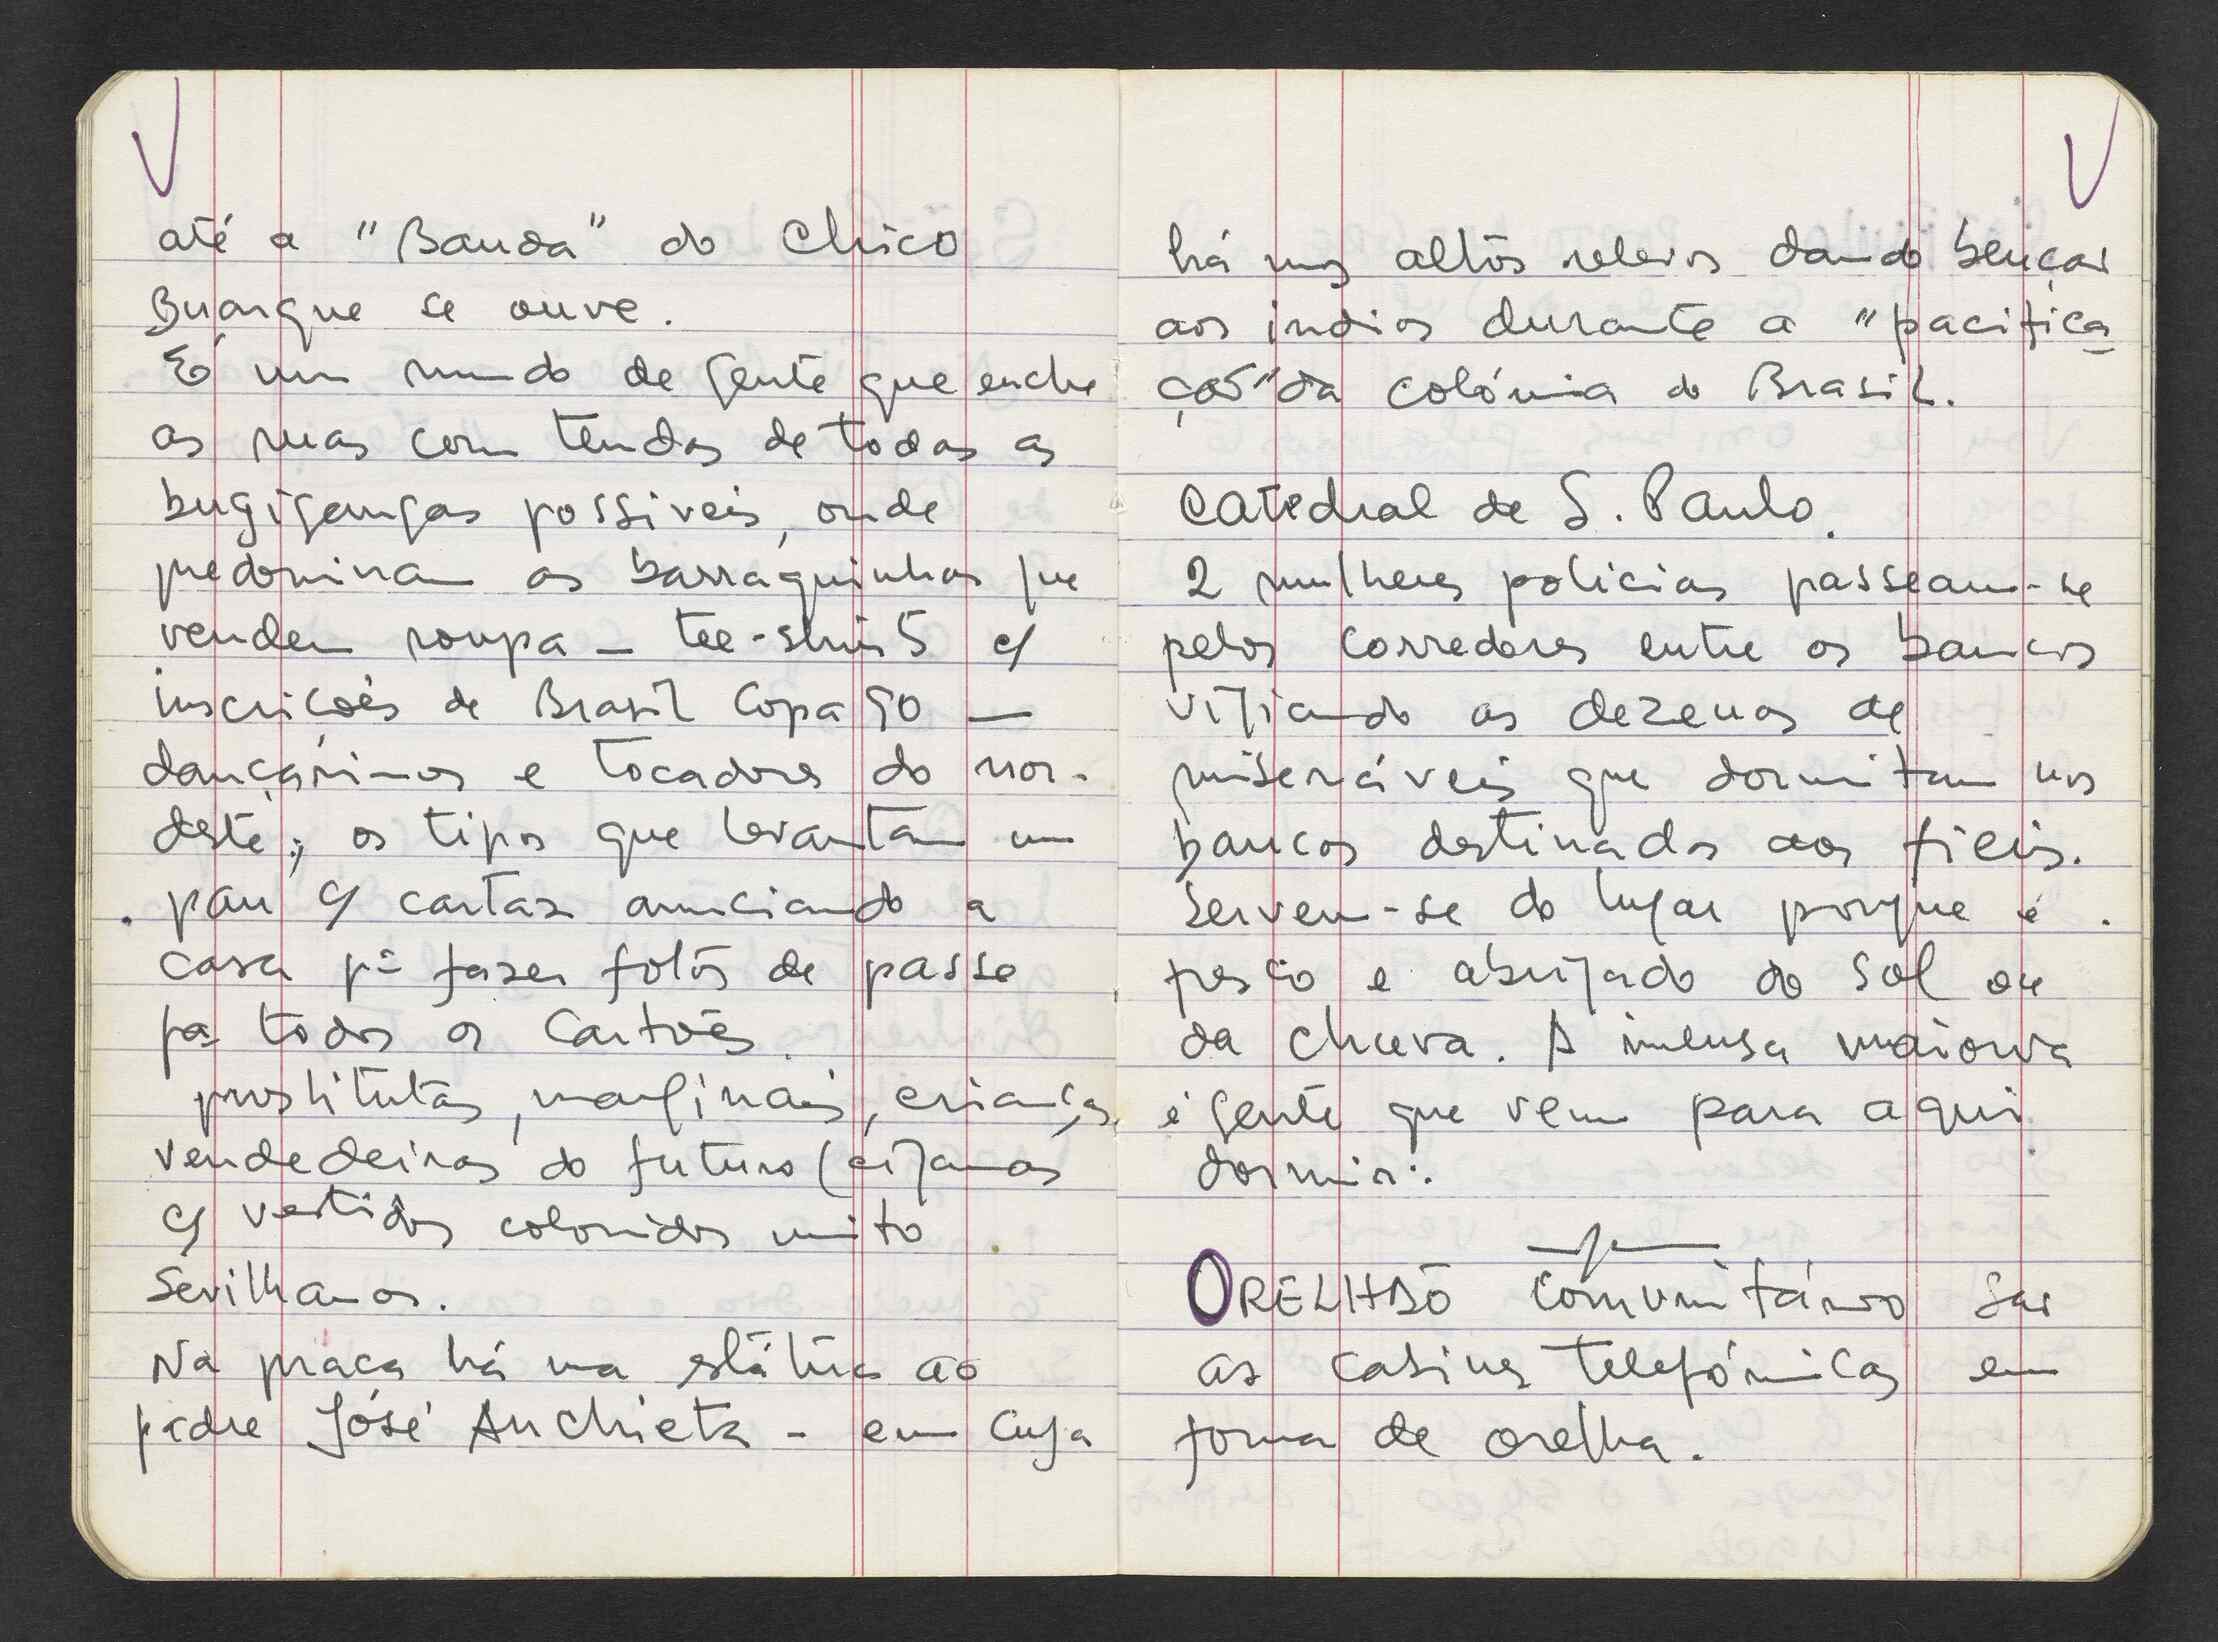 até a "Banda" do Chico
Buarque se ouve.
É um mundo de gente que enche
as ruas com tendas de todas as
bugigangas possiveis, onde
predominam as barraquinhas que
vendem roupa - tee-shirts c/
inscrições de Brasil Copa 90 —
dançarinos e tocadores do nor-
deste; os tipos que levantam um
pau c/ cartaz anunciando a
casa pª fazer fotos de passe
pª todos os cartões.
prostitutas, marginais, crianças,
vendedeiras do futuro (ciganas
c/ vestidos coloridos muito
Sevilhanos.
Na praça há uma estátua ao
padre José Anchieta - em cuja
há uns altos relevos dando bençãos
aos indios durante a "pacifica
ção" da colónia do Brasil.
Catedral de S. Paulo.
2 mulheres policias passeam-se
pelos corredores entre os bancos
vigiando as dezenas de
miseráveis que dormitam nos
bancos destinados aos fieis.
Servem-se do lugar porque é
fresco e abrigado do sol ou
da chuva. A imensa maioria
é gente que vem para aqui
dormir.
ORELHÃO comunitário são
as cabines telefónicas em
forma de orelha.